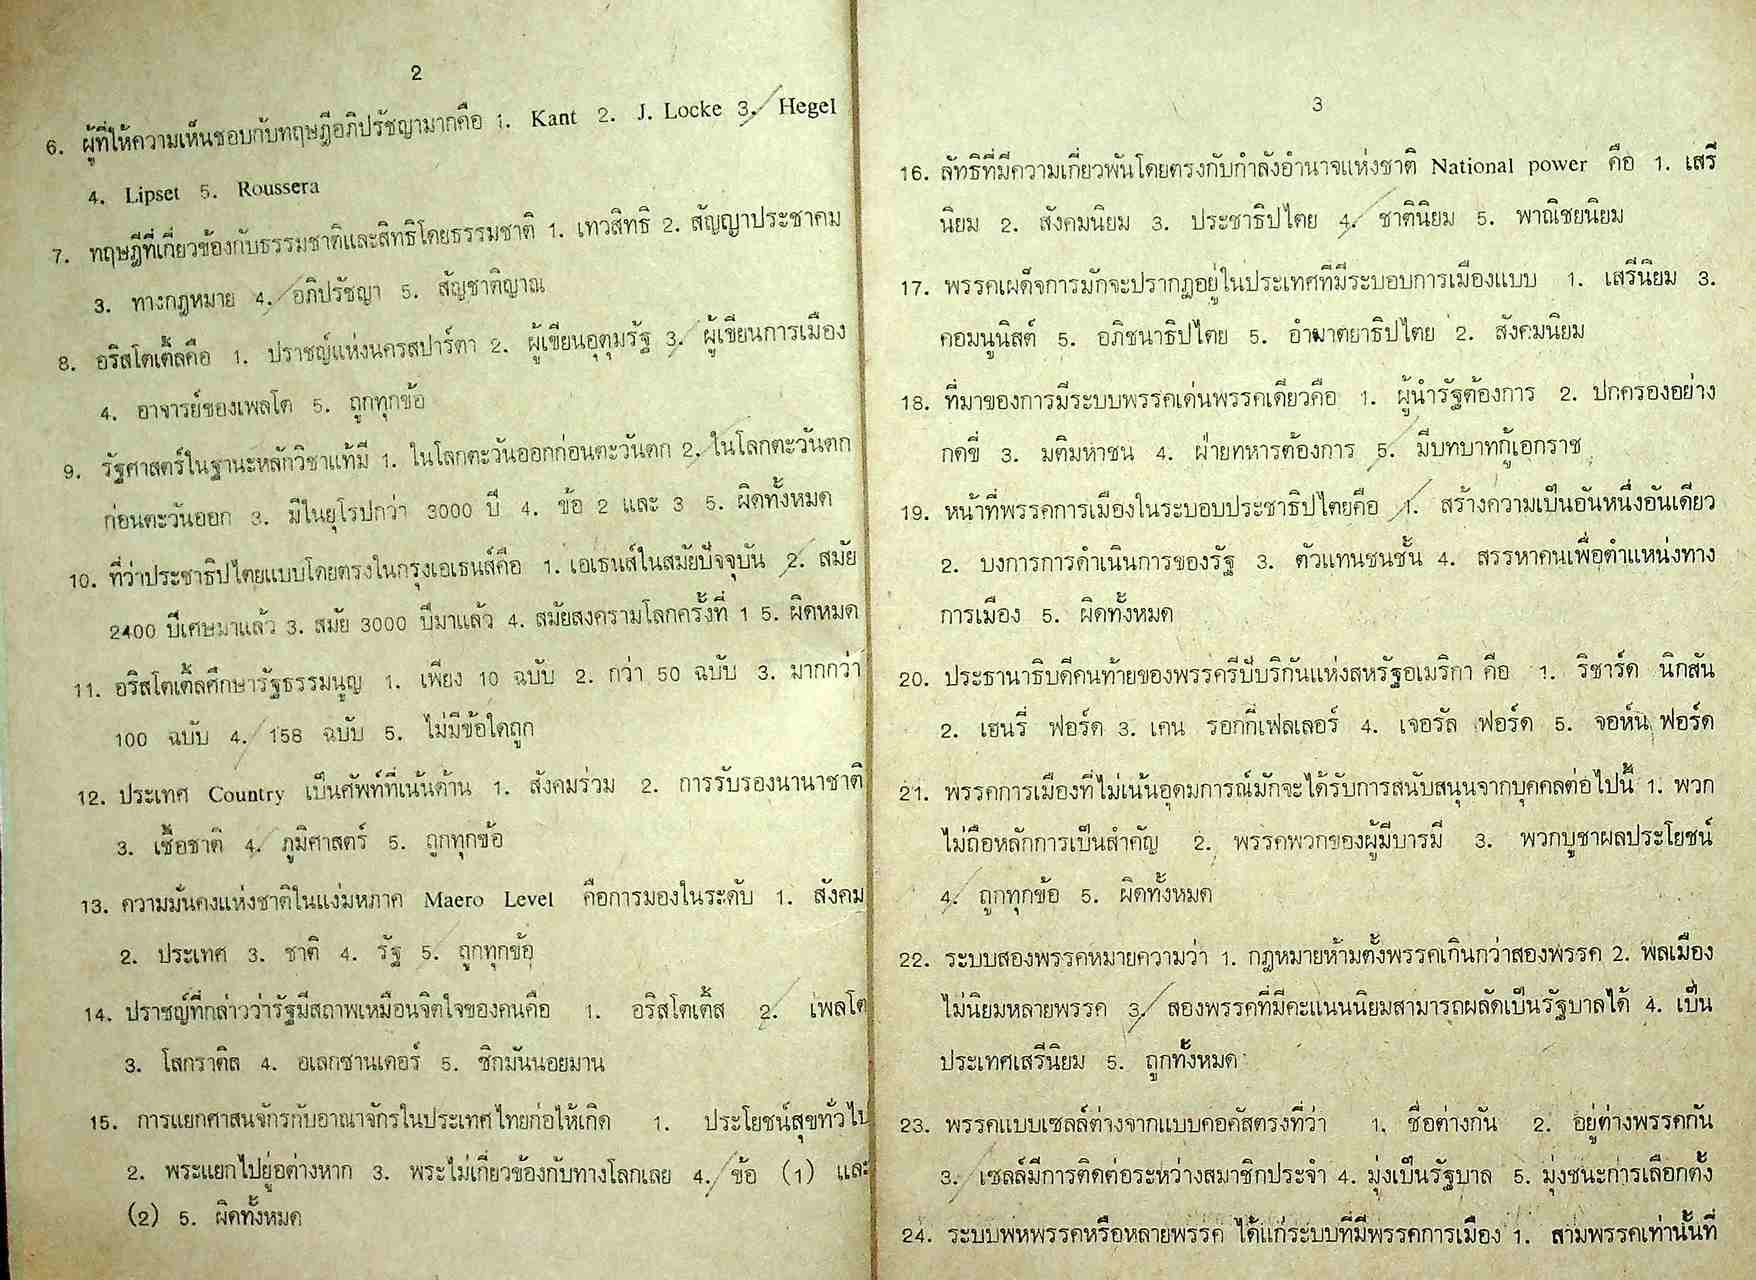 2
6. ผู้ที่ให้ความเห็นชอบกับทฤษฎีอภิปรัชญามากคือ 1. Kant 2. J. Locke 3. Hegel
4. Lipset 5. Roussera
7. ทฤษฎีที่เกี่ยวข้องกับธรรมชาติและสิทธิโดยธรรมชาติ 1. เทวสิทธิ 2. สัญญาประชาคม
3. ทางกฎหมาย 4. อภิปรัชญา 5. สัญชาติญาณ
8. อริสโตเติ้ลคือ 1. ปราชญ์แห่งนครสปาร์ตา 2. ผู้เขียนอุตุมรัฐ 3. ผู้เขียนการเมือง
4. อาจารย์ของเพลโต 5. ถูกทุกข้อ
9. รัฐศาสตร์ในฐานะหลักวิชาแท้มี 1. ในโลกตะวันออกก่อนตะวันตก 2. ในโลกตะวันตก
ก่อนตะวันออก 3. มีในยุโรปกว่า 3000 ปี 4. ข้อ 2 และ 3 5. ผิดทั้งหมด
10. ที่ว่าประชาธิปไตยแบบโดยตรงในกรุงเอเธนส์คือ 1. เอเธนส์ในสมัยปัจจุบัน 2. สมัย
2400 ปีเศษมาแล้ว 3. สมัย 3000 ปีมาแล้ว 4. สมัยสงครามโลกครั้งที่ 1 5. ผิดหมด
11. อริสโตเติ้ลศึกษารัฐธรรมนูญ 1. เพียง 10 ฉบับ 2. กว่า 50 ฉบับ 3. มากกว่า
100 ฉบับ 4. 158 ฉบับ 5. ไม่มีข้อใดถูก
12. ประเทศ Country เป็นศัพท์ที่เน้นด้าน 1. สังคมร่วม 2. การรับรองนานาชาติ
3. เชื้อชาติ 4. ภูมิศาสตร์ 5. ถูกทุกข้อ
13. ความมั่นคงแห่งชาติในแง่มหภาค Maero Level คือการมองในระดับ 1. สังคม
2. ประเทศ 3. ชาติ 4. รัฐ 5. ถูกทุกข้อ
14. ปราชญ์ที่กล่าวว่ารัฐมีสภาพเหมือนจิตใจของคนคือ 1. อริสโตเติ้ส 2. เพลโต
3. โสกราติส 4. อเลกซานเดอร์ 5. ซิกมันนอยมาน
15. การแยกศาสนจักรกับอาณาจักรในประเทศไทยก่อให้เกิด 1. ประโยชน์สุขทั่วไป
2. พระแยกไปยู่อต่างหาก 3. พระไม่เกี่ยวข้องกับทางโลกเลย 4. ข้อ (1) และ
(2) 5. ผิดทั้งหมด
3
16. ลัทธิที่มีความเกี่ยวพันโดยตรงกับกำลังอำนาจแห่งชาติ National power คือ 1. เสรี
นิยม 2. สังคมนิยม 3. ประชาธิปไตย 4. ชาตินิยม 5. พาณิชยนิยม
17. พรรคเผด็จการมักจะปรากฎอยู่ในประเทศที่มีระบอบการเมืองแบบ 1. เสรีนิยม 3.
คอมนูนิสต์ 5. อภิชนาธิปไตย 5. อำมาตยาธิปไตย 2. สังคมนิยม
18. ที่มาของการมีระบบพรรคเด่นพรรคเดียวคือ 1. ผู้นำรัฐต้องการ 2. ปกครองอย่าง
กดขี่ 3. มติมหาชน 4. ฝ่ายทหารต้องการ 5. มีบทบาทกู้เอกราช
19. หน้าที่พรรคการเมืองในระบอบประชาธิปไตยคือ 1. สร้างความเป็นอันหนึ่งอันเดียว
2. บงการการดำเนินการของรัฐ 3. ตัวแทนชนชั้น 4. สรรหาคนเพื่อตำแหน่งทาง
การเมือง 5. ผิดทั้งหมด
20. ประธานาธิบดีคนท้ายของพรรครีปับริกันแห่งสหรัฐอเมริกา คือ 1. ริชาร์ด นิกสัน
2. เฮนรี่ ฟอร์ด 3. เคน รอกกี้เฟลเลอร์ 4. เจอรัล ฟอร์ด 5. จอห์น ฟอร์ด
21. พรรคการเมืองที่ไม่เน้นอุดมการณ์มักจะได้รับการสนับสนุนจากบุคคลต่อไปนี้ 1. พวก
ไม่ถือหลักการเป็นสำคัญ 2. พรรคพวกของผู้มีบารมี 3. พวกบูชาผลประโยชน์
4. ถูกทุกข้อ 5. ผิดทั้งหมด
22. ระบบสองพรรคหมายความว่า 1. กฎหมายห้ามตั้งพรรคเกินกว่าสองพรรค 2. พลเมือง
ไม่นิยมหลายพรรค 3. สองพรรคที่มีคะแนนนิยมสามารถผลัดเป็นรัฐบาลได้ 4. เป็น
ประเทศเสรีนิยม 5. ถูกทั้งหมด
23. พรรคแบบเซลล์ต่างจากแบบคอคัสตรงที่ว่า 1. ชื่อต่างกัน 2. อยู่ต่างพรรคกัน
3. เซลล์มีการติดต่อระหว่างสมาชิกประจำ 4. มุ่งเป็นรัฐบาล 5. มุ่งชนะการเลือกตั้ง
24. ระบบพหพรรคหรือหลายพรรค ได้แก่ระบบที่มีพรรคการเมือง 1. สามพรรคเท่านั้นที่